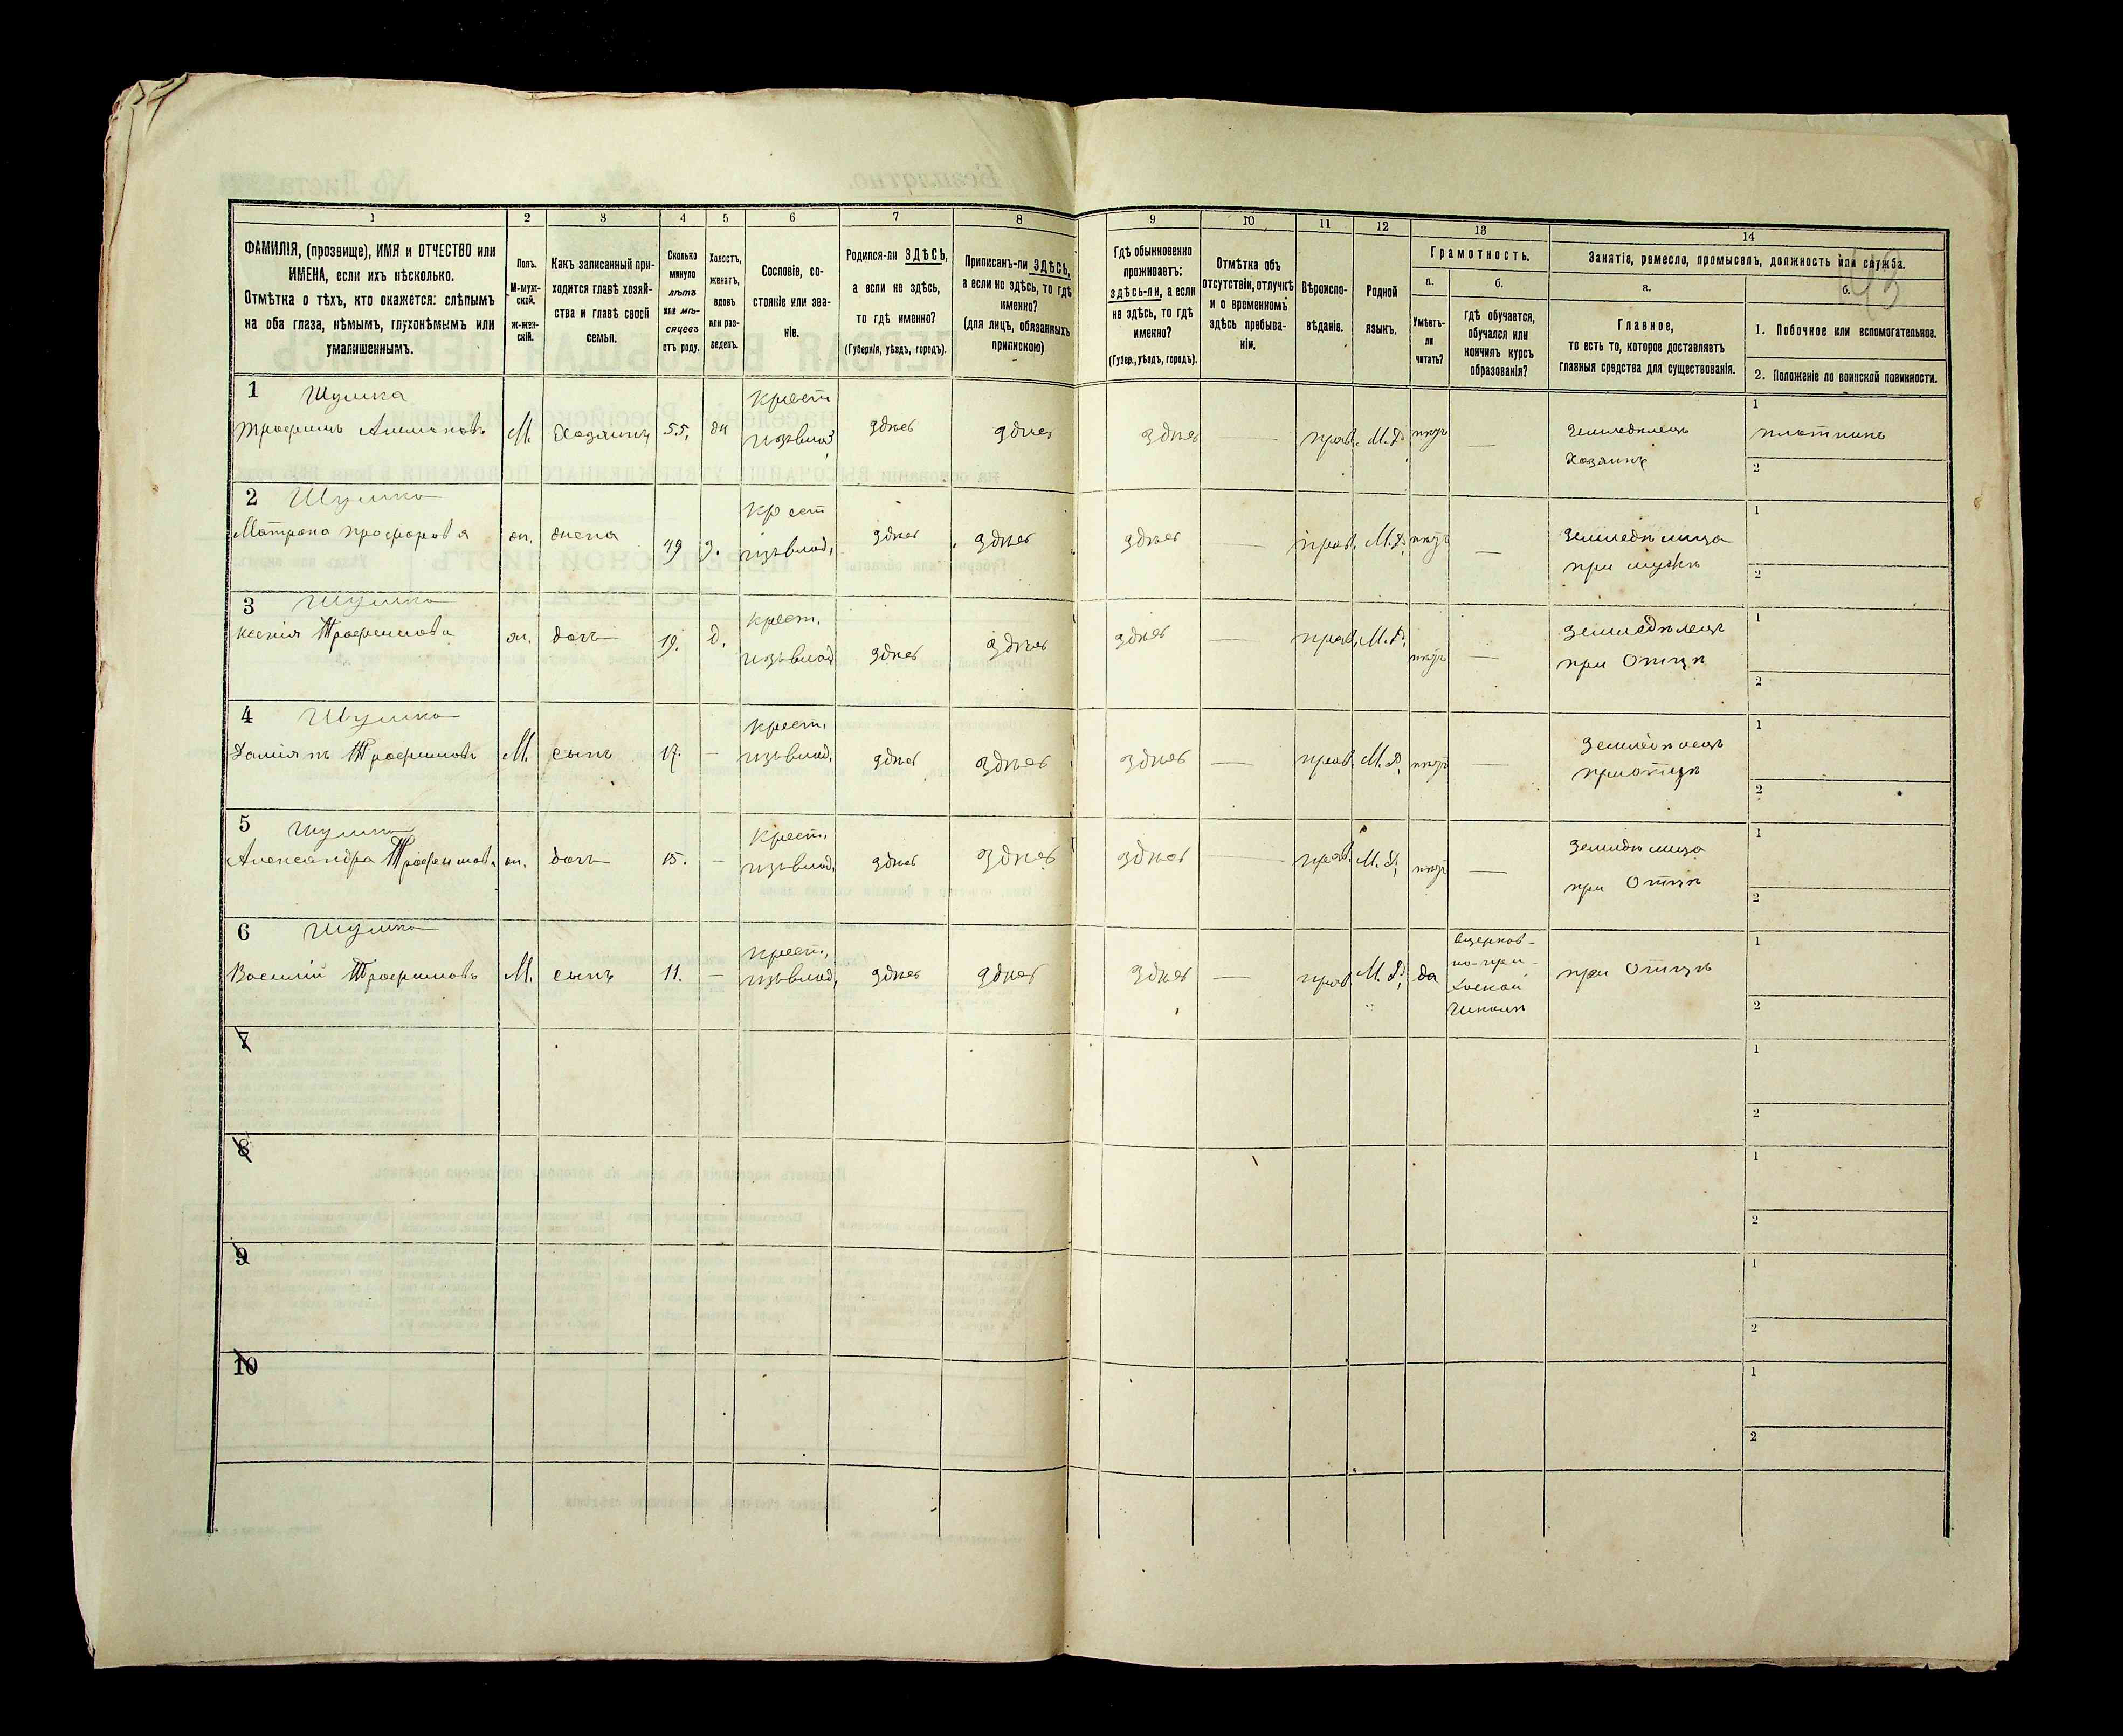 1 2 3 4 5 6 7 8 9 10 11 12 13 14
ФАМИЛІЯ, (прозвище), ИМЯ и ОТЧЕСТВО или
ИМЕНА, если ихъ нѣсколько.
Отмѣтка о тѣхъ, кто окажется: слѣпымъ
на оба глаза, нѣмымъ, глухонѣмымъ или
умалишеннымъ.
Полъ.
М-муж-
ской.
ж-жен-
скій.
Какъ записанный при-
ходится главѣ хозяй-
ства и главѣ своей
семьи.
Сколько
минуло
лѣтъ
или мѣ-
сяцевъ
отъ роду.
Холостъ,
женатъ,
вдовъ
или раз-
веденъ.
Сословіе, со-
стояніе или зва-
ніе.
Родился-ли ЗДѢСЬ,
а если не здѣсь,
то гдѣ именно?
(Губернія, уѣздъ, городъ).
Приписанъ-ли ЗДѢСЬ,
а если не здѣсь, то гдѣ
именно?
(для лицъ, обязанныхъ
припискою)
Гдѣ обыкновенно
проживаетъ:
здѣсь-ли, а если
не здѣсь, то гдѣ
именно?
(Губер., уѣздъ, городъ).
Отмѣтка объ
отсутствіи, отлучкѣ
и о временномъ
здѣсь пребыва-
ніи.
Вѣроиспо-
вѣданіе.
Родной
языкъ.
Грамотность.
а.
Умѣетъ-
ли
читать?
б.
гдѣ обучается,
обучался или
кончилъ курсъ
образованія?
Занятіе, ремесло, промыселъ, должность или служба.
а.
Главное,
то есть то, которое доставляетъ
главныя средства для существованія.
б.
1. Побочное или вспомогательное.
2. Положеніе по воинской повинности.
1 Шушка крест 1
Трофимъ М. Хозяинъ 55. здѣсь здѣсь здѣсь — прав. М.Р. — Земледѣлецъ плотникъ
Хозяинъ 2
2 Шушка крест 1
Матрона ж. жена 49 з. здѣсь здѣсь здѣсь — прав. М.Р. — при мужѣ
2
3 Шушка крест. 1
Ксенія Трофимова ж. дочь 19. д. здѣсь здѣсь здѣсь — прав. М.Р. — Земледѣлецъ
при Отцѣ 2
4 Шушка крест. 1
Даміянъ Трофимовъ М. сынъ 17. — здѣсь здѣсь здѣсь — прав. М.Р. — Земледѣлецъ
при отцѣ 2
5 Шушка крест. 1
Александра Трофимова ж. дочь 15. — здѣсь здѣсь здѣсь — прав. М.Р. —
при Отцѣ 2
6 Шушка крест. вцерков- 1
но-при-
Василій Трофимовъ М. сынъ 11. — здѣсь здѣсь здѣсь — прав. М.Р. да ходской при Отцѣ
школѣ 2
7 1
2
8 1
2
9 1
2
10 1
2